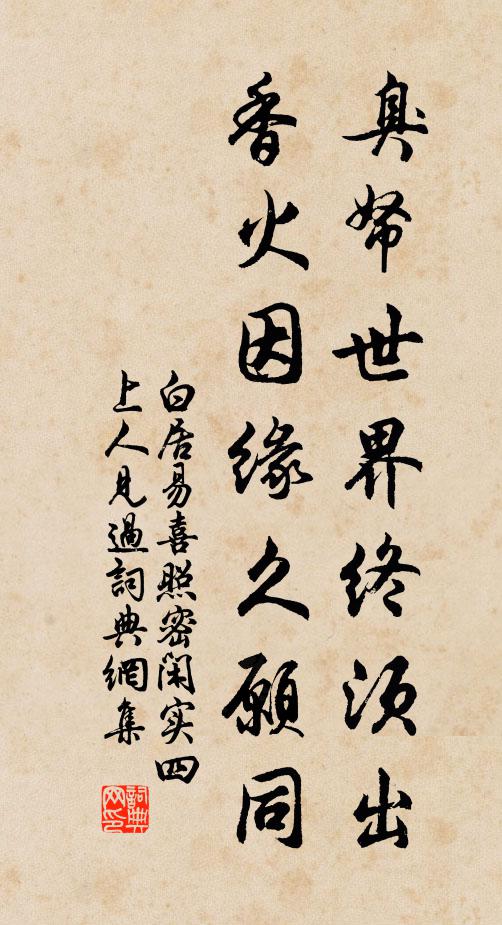 臭帑世界終須出
香火因緣久願同
白居易喜照密閑实四
上人見過詞典網集
詞典网印